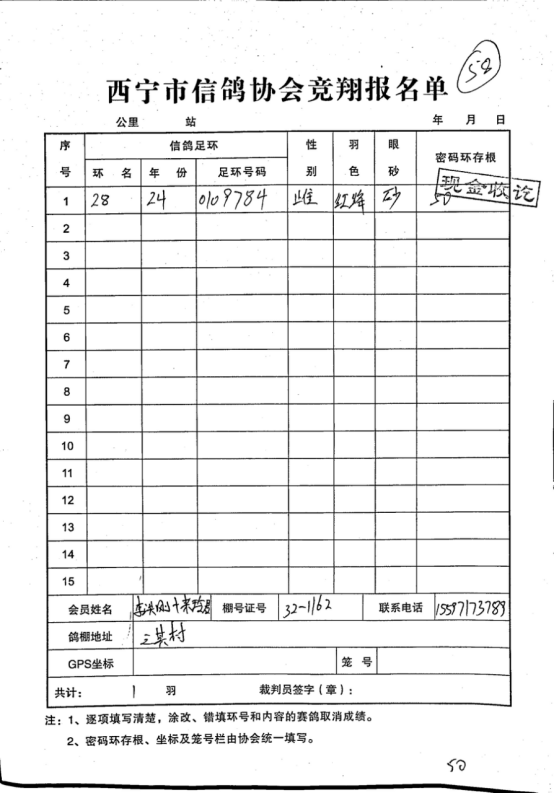 50
西宁市信鸽协会竞翔报名单
公里 站 年 月 日
序号 信鸽足环 性别 羽色 眼砂 密码环存根
环 名 年 份 足环号码
现金收讫
1 28 24 0109784 雌 红绛 砂 50
2
3
4
5
6
7
8
9
10
11
12
13
14
15
会员姓名 李洪刚 棚号证号 32-1162 联系电话 15597173789
鸽棚地址 三其村
GPS坐标 笼 号
共计: 1 羽 裁判员签字(章):
注:1、逐项填写清楚,涂改、错填环号和内容的赛鸽取消成绩。
2、密码环存根、坐标及笼号栏由协会统一填写。
50